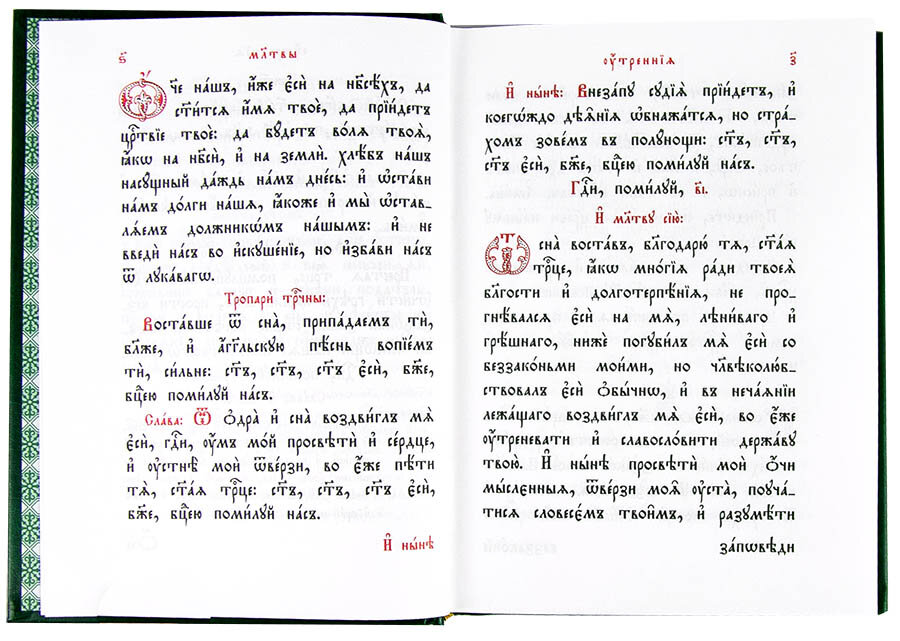 ѕ҃ мл҃твы
Ѻ҆́че на́шъ, и҆́же є҆сѝ на нб҃сѣ́хъ, да
ст҃и́тсѧ и҆́мѧ твоѐ, да прїи́детъ
црⷭ҇твїе твоѐ: да бу́детъ во́лѧ твоѧ̀,
ꙗ҆́кѡ на нб҃сѝ, и҆ на землѝ. хлѣ́бъ на́шъ
насу́щный да́ждь на́мъ дне́сь: и҆ ѡ҆ста́ви
на́мъ до́лги на́шѧ, ꙗ҆́коже и҆ мы̀ ѡ҆ставлѧ́-
ѧем должникѡ́мъ на́шымъ: и҆ не
введѝ на́съ во и҆скуше́нїе, но и҆зба́ви на́съ
ѿ лука́вагѡ.
Тропарѝ трⷪ҇чны:
Воста́вше ѿ сна̀, припа́даемъ тѝ,
бл҃же, и҆ а҆́гг҃льскую пѣ́снь вопїе́мъ
тѝ, си́льне: ст҃ъ, ст҃ъ, ст҃ъ є҆сѝ, бж҃е,
бцⷣею поми́луй на́съ.
Сла́ва: Ѿ ѻ҆дра̀ и҆ сна̀ воздви́глъ мѧ̀
є҆сѝ, гдⷭ҇и, ѹ҆́мъ мо́й просвѣтѝ и҆ се́рдце,
и҆ ѹ҆стнѣ̀ моѝ ѿве́рзи, во є҆́же пѣ́ти
тѧ̀, ст҃а́ѧ трⷪ҇це: ст҃ъ, ст҃ъ, ст҃ъ є҆сѝ,
бж҃е, бцⷣею поми́луй на́съ.
И҆ ны́нѣ
ѹ҆́тренниѧ з҃
И҆ ны́нѣ: Внеза́пу судїѧ̀ прїи́детъ, и҆
коегѡ́ждо дѣѧ́нїѧ ѡ҆бнажа́тсѧ, но стра́-
хомъ зове́мъ в полу́нощи: ст҃ъ, ст҃ъ,
ст҃ъ є҆сѝ, бж҃е, бцⷣею поми́луй на́съ.
Гдⷭ҇и, поми́луй, в҃і.
И҆ мл҃тву сїю̀:
Ѿ сна̀ воста́въ, бл҃годарю́ тѧ, ст҃а́ѧ
трⷪ҇це, ꙗ҆́кѡ мно́гїѧ ра́ди твоеѧ̀
бл҃гости и҆ долготерпѣ́нїѧ, не про-
гнѣ́валсѧ є҆сѝ на мѧ̀, лѣни́ваго и҆
грѣ́шнаго, нижѐ погуби́лъ мѧ̀ є҆сѝ со
беззако́ньми мои́ми, но чл҃вѣколю́б-
ствовалъ є҆сѝ ѻ҆бы́чнѡ, и҆ в неча́ѧнїи
лежа́щаго воздви́глъ мѧ̀ є҆сѝ, во є҆́же
ѹ҆́треневати и҆ славосло́вити держа́ву
твою̀. И҆ ны́нѣ просвѣтѝ моѝ ѻ҆́чи
мы́сленныѧ, ѿве́рзи моѧ̀ ѹ҆ста̀, поуча́-
тисѧ словесє́мъ твои̑мъ, и҆ разумѣ́ти
за́пѡвѣди